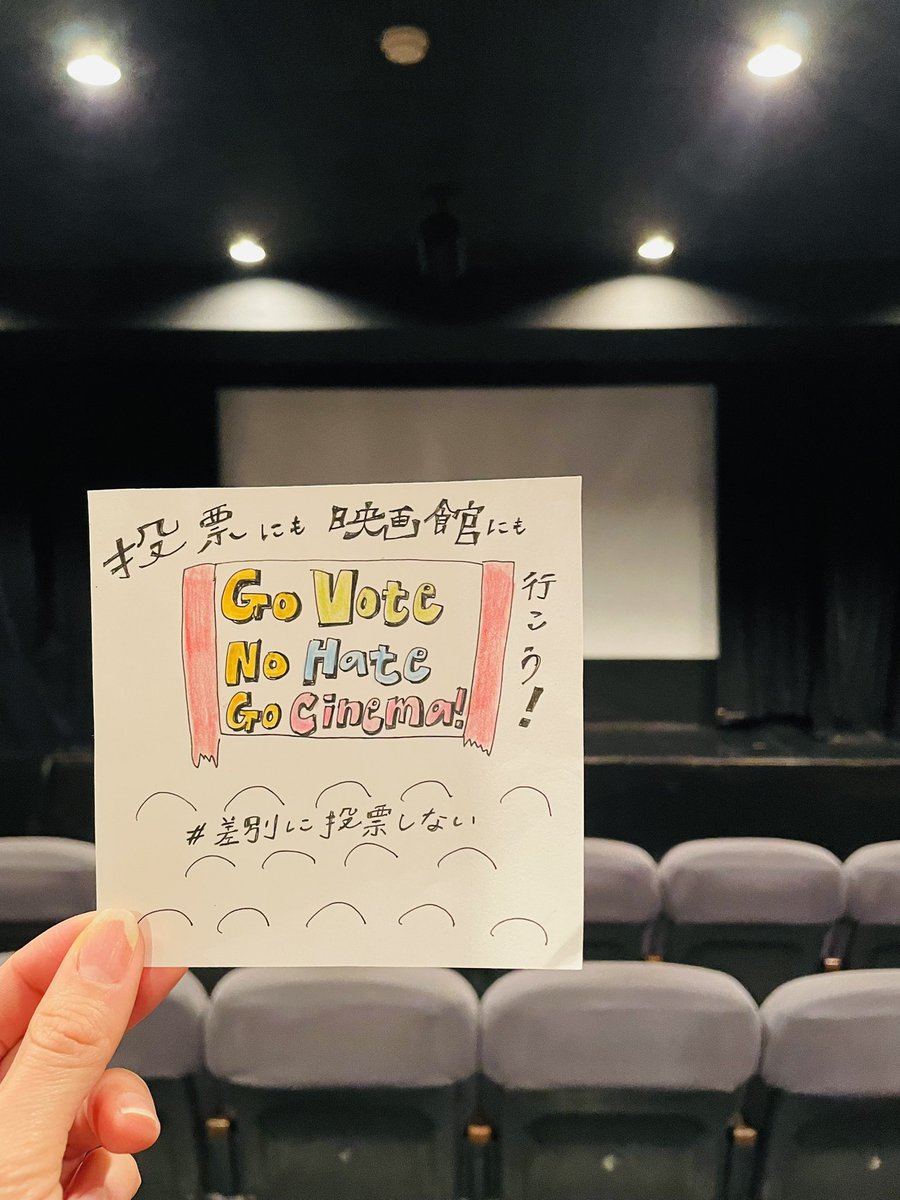 投票にも 映画館にも
行こう!
Go Vote
No Hate
Go Cinema!
#差別に投票しない